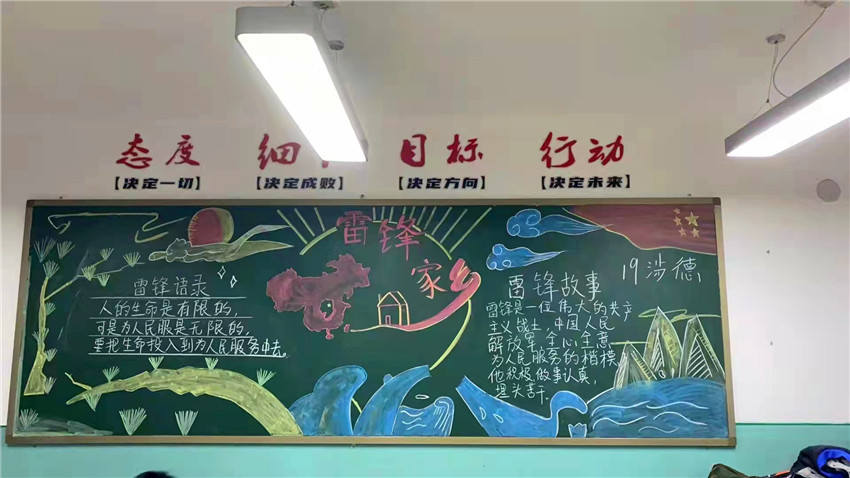 态度 细 目标 行动
【决定一切】 【决定成败】 【决定方向】 【决定未来】
雷锋家乡
雷锋语录
人的生命是有限的,
可是为人民服是无限的,
要把生命投入到为人民服务中去。
雷锋故事
雷锋是一位伟大的共产
主义战士,中国人民
解放军全心全意
为人民服务的楷模
他积极做事认真,
埋头苦干。
19涉德